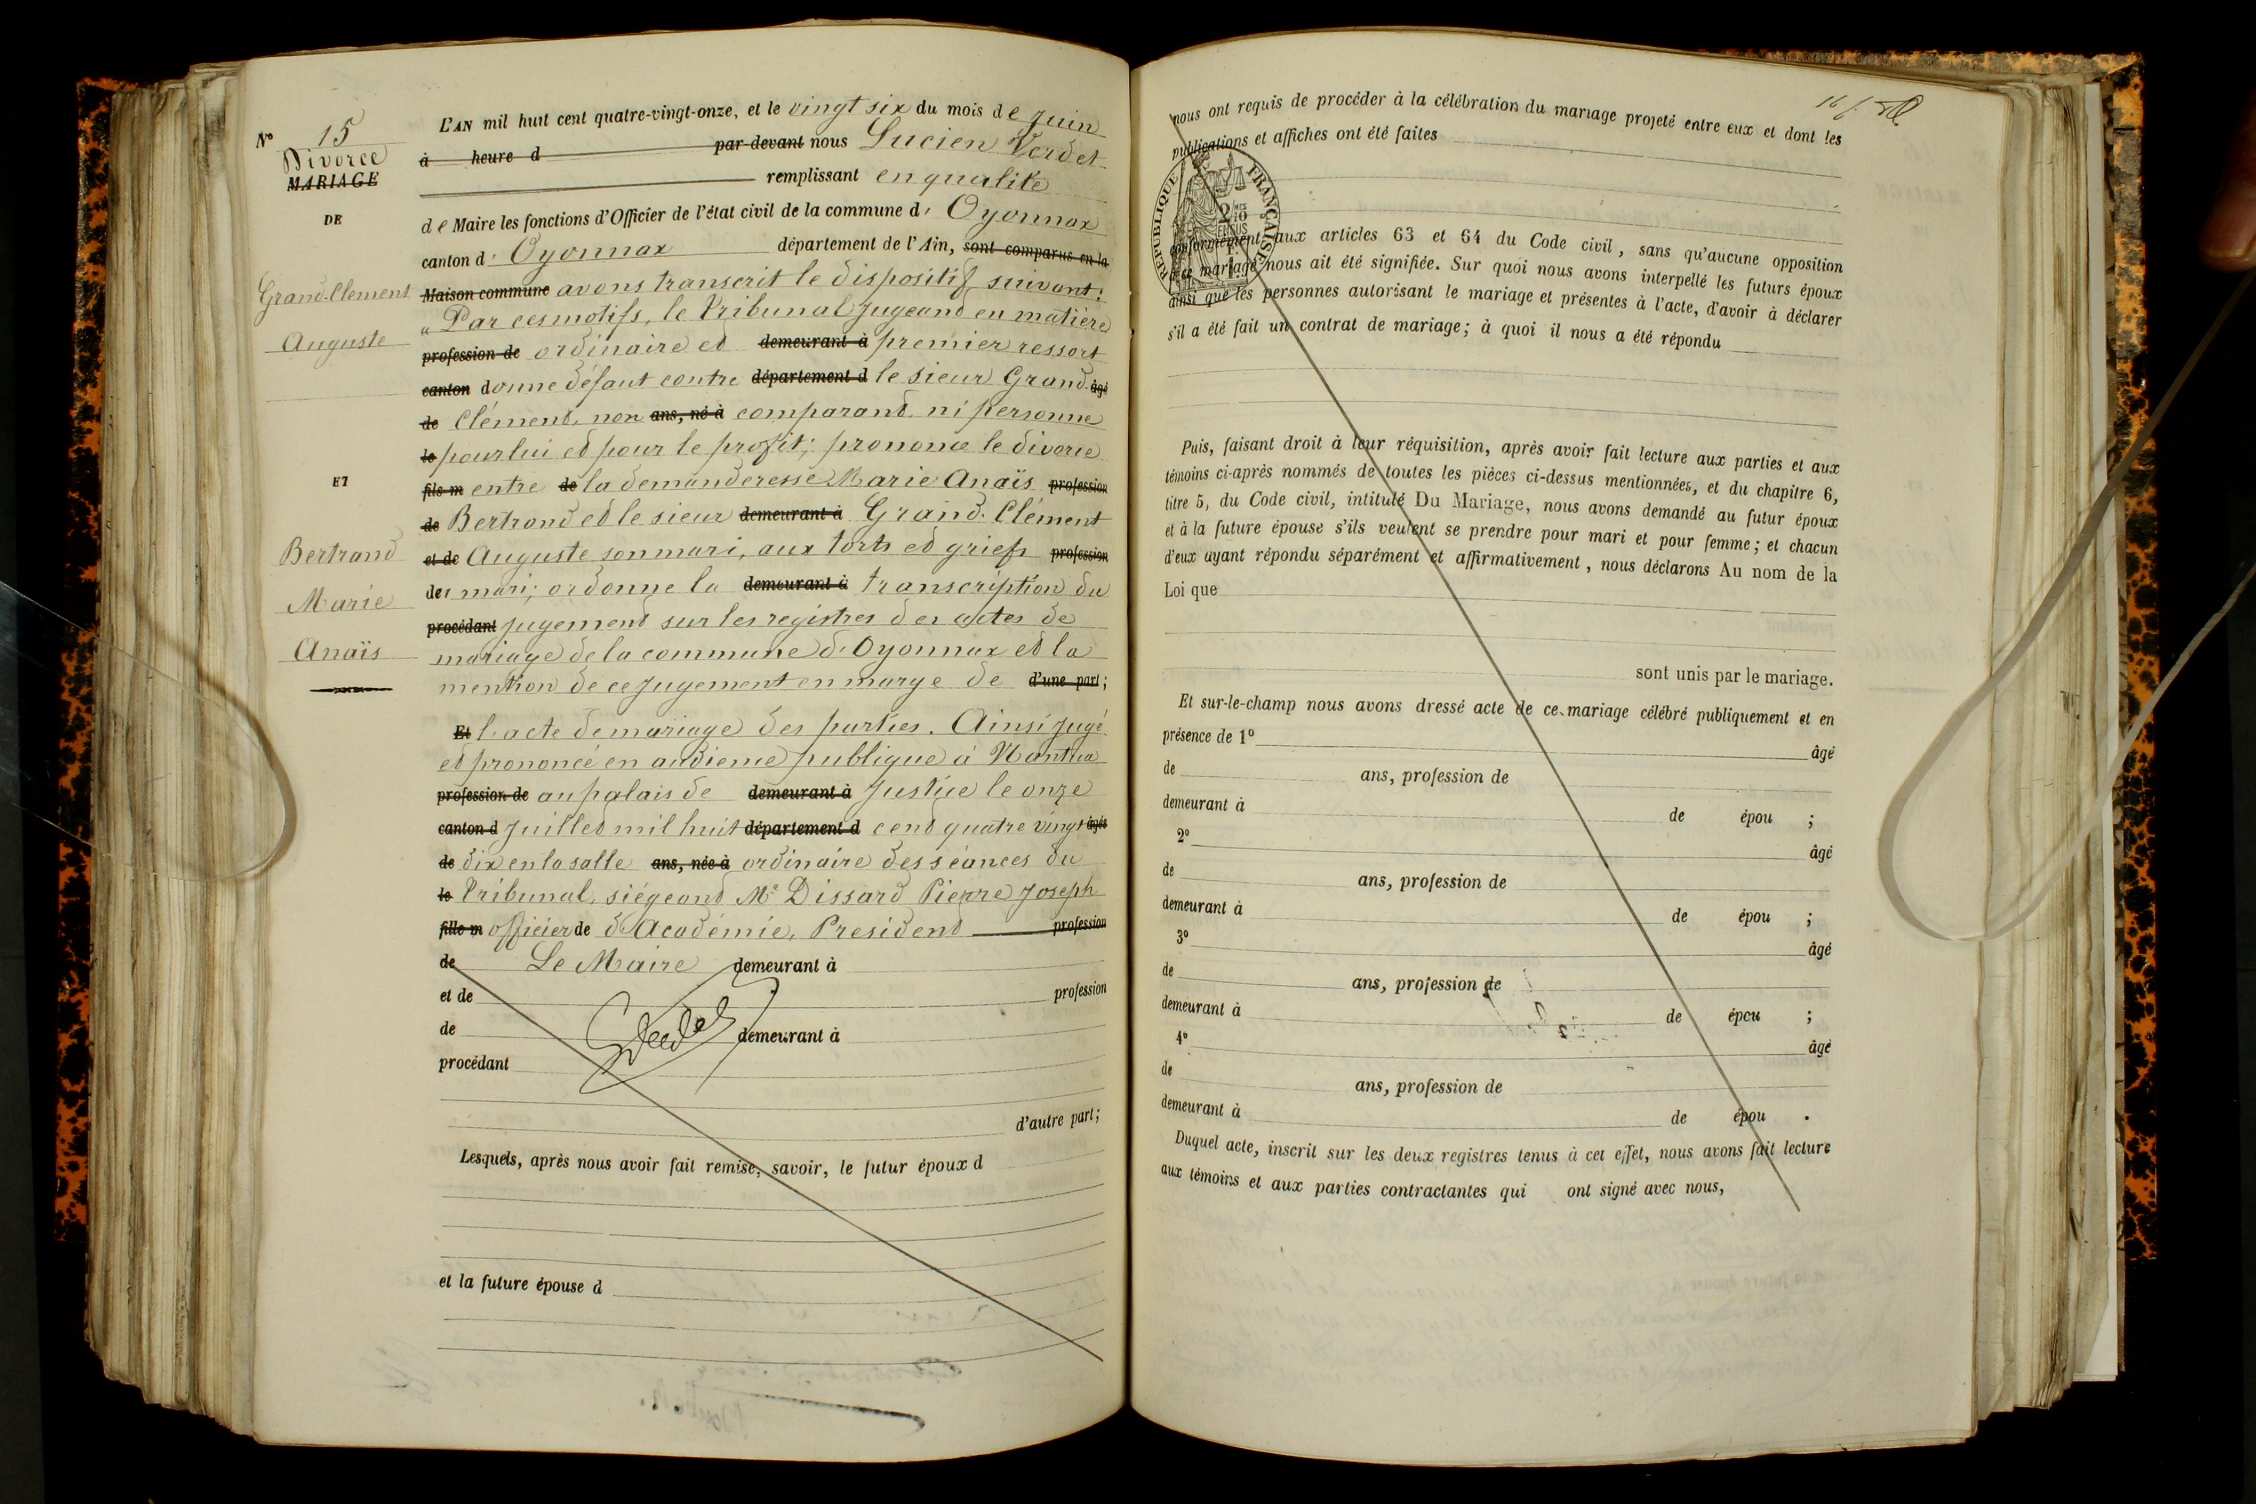 Nº 15
Divorce
MARIAGE
DE
Grand-Clement
Auguste
ET
Bertrand
Marie
Anaïs
L'AN mil huit cent quatre-vingt-onze, et le vingt six du mois de Juin
à heure d par-devant nous Lucien Verdet
remplissant en qualité
de Maire les fonctions d'Officier de l'état civil de la commune d' Oyonnax
canton d' Oyonnax département de l'Ain, sont comparus en la
Maison commune avons transcrit le dispositif suivant:
« Par ces motifs, le Tribunal jugeant en matière
profession de ordinaire et demeurant à premier ressort
canton donne défaut contre département d le sieur Grand- âgé
de Clément, non ans, né à comparant ni personne
le pour lui et pour le profit; prononce le divorce
fils m entre de la demanderesse Marie Anaïs profession
de Bertrand et le sieur demeurant à Grand-Clément
et de Auguste son mari, aux torts et griefs profession
de mari; ordonne la demeurant à transcription du
procédant jugement sur les registres des actes de
mariage de la commune d'Oyonnax et la
mention de ce jugement en marge de d'une part;
Et l'acte de mariage des parties. Ainsi jugé
et prononcé en audience publique à Nantua
profession de au palais de demeurant à justice le onze
canton d Juillet mil huit département d cent quatre vingt âgée
de dix en la salle ans, née à ordinaire des séances du
le Tribunal, siégeant Mr Dissard Pierre Joseph
fille m officier de d'Académie, Président profession
de Le Maire demeurant à
et de profession
de demeurant à
procédant
d'autre part;
Lesquels, après nous avoir fait remise, savoir, le futur époux d
et la future épouse d
nous ont requis de procéder à la célébration du mariage projeté entre eux et dont les
publications et affiches ont été faites
RÉPUBLIQUE FRANÇAISE
conformément aux articles 63 et 64 du Code civil, sans qu'aucune opposition
à ce mariage nous ait été signifiée. Sur quoi nous avons interpellé les futurs époux
ainsi que les personnes autorisant le mariage et présentes à l'acte, d'avoir à déclarer
s'il a été fait un contrat de mariage; à quoi il nous a été répondu
Puis, faisant droit à leur réquisition, après avoir fait lecture aux parties et aux
témoins ci-après nommés de toutes les pièces ci-dessus mentionnées, et du chapitre 6,
titre 5, du Code civil, intitulé Du Mariage, nous avons demandé au futur époux
et à la future épouse s'ils veulent se prendre pour mari et pour femme; et chacun
d'eux ayant répondu séparément et affirmativement, nous déclarons Au nom de la
Loi que
sont unis par le mariage.
Et sur-le-champ nous avons dressé acte de ce mariage célébré publiquement et en
présence de 1º âgé
de ans, profession de
demeurant à de épou ;
2º âgé
de ans, profession de
demeurant à de épou ;
3º âgé
de ans, profession de
demeurant à de épou ;
4º âgé
de ans, profession de
demeurant à de épou .
Duquel acte, inscrit sur les deux registres tenus à cet effet, nous avons fait lecture
aux témoins et aux parties contractantes qui ont signé avec nous,